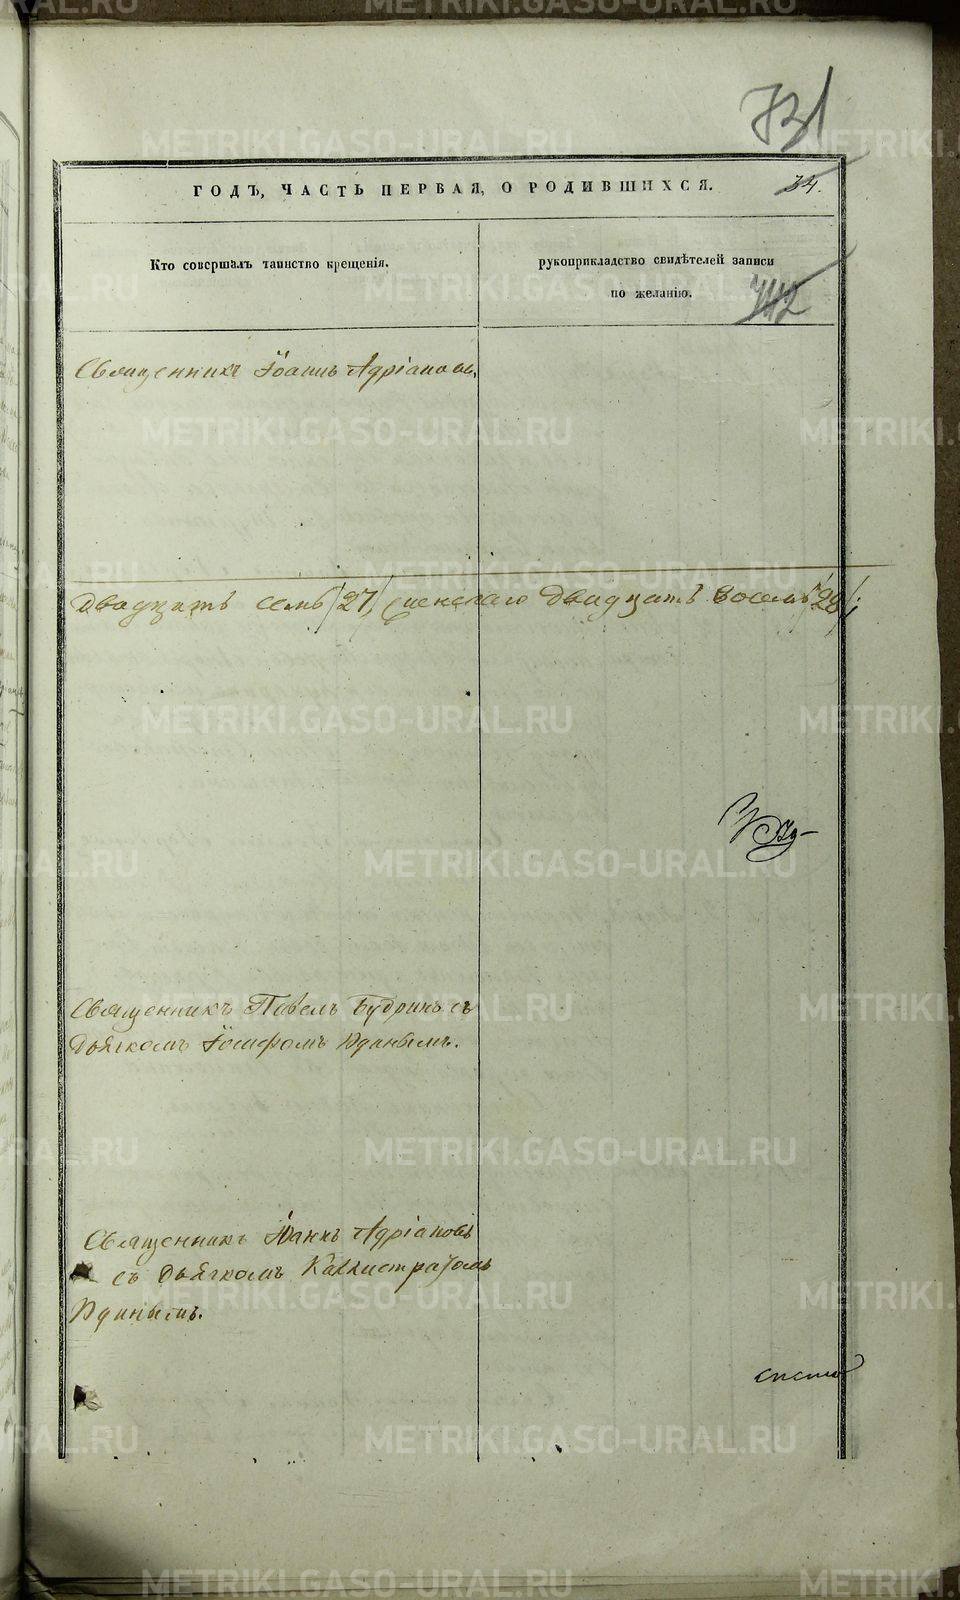 731
ГОДЪ, ЧАСТЬ ПЕРВАЯ, О РОДИВШИХСЯ.
34.
Кто совершалъ таинство крещенія.
рукоприкладство свидѣтелей записи
по желанію.
742
Священникъ Іоаннъ Адріановъ,
двадцать семь /27/, женскаго двадцать восемь /28/;
Священникъ Павелъ Будринъ съ
дьячкомъ Іосифомъ Юдинымъ.
Священникъ Іоаннъ Адріановъ
съ дьячкомъ Каллистратомъ
Юдинымъ.
METRIKI.GASO-URAL.RU